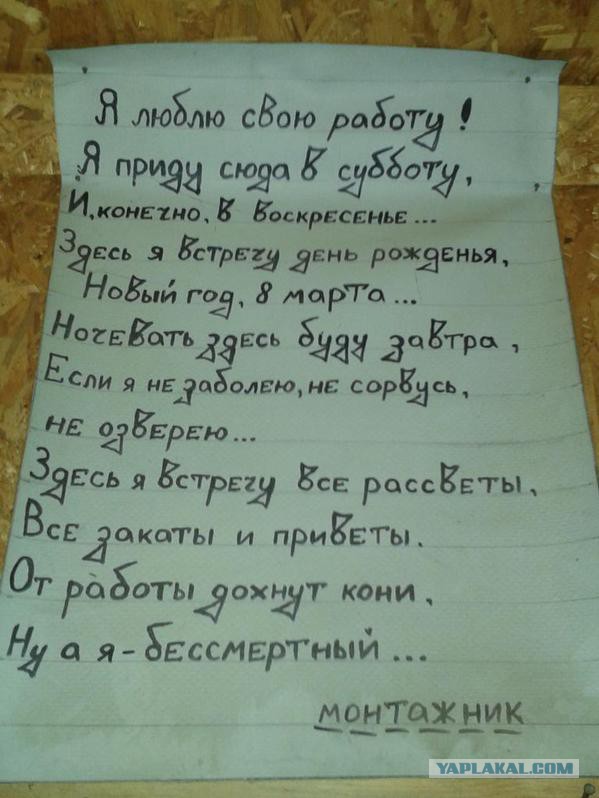 Я люблю свою работу!
Я приду сюда в субботу,
И, конечно, в воскресенье...
Здесь я встречу день рожденья,
Новый год, 8 марта...
Ночевать здесь буду завтра,
Если я не заболею, не сорвусь,
не озверею...
Здесь я встречу все рассветы,
Все закаты и приветы.
От работы дохнут кони,
Ну а я - бессмертный...
монтажник
YAPLAKAL.COM